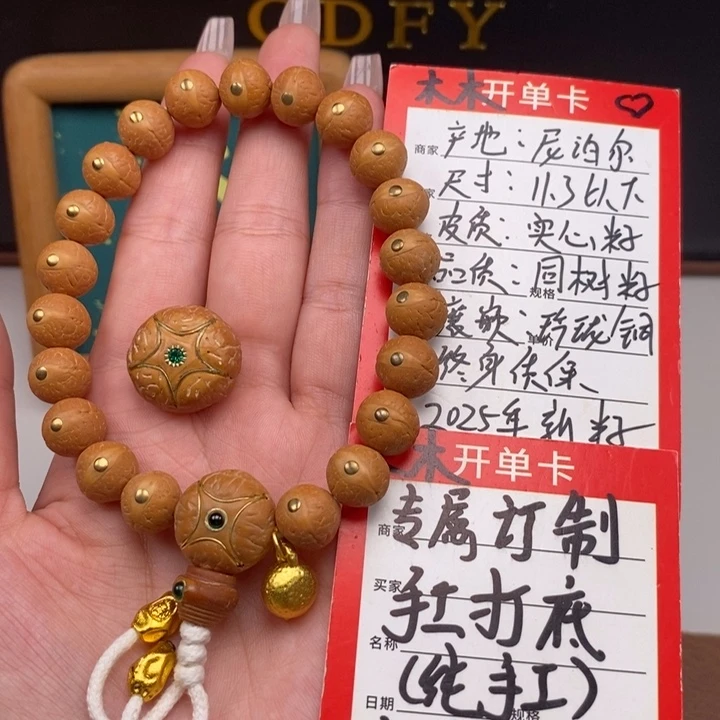 CDFY
木木开单卡
商家 产地：尼泊尔
家 尺寸：11.3以下
皮质：实心籽
品质：同树籽
规格
镶嵌：玲珑/铜
单价
终身保
2025年新籽
木开单卡
商家 专属订制
买家 手工打底
名称 (纯手工)
日期 规格